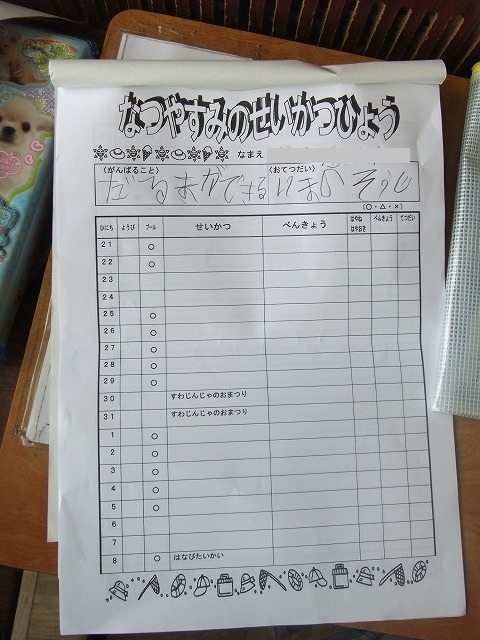 なつやすみのせいかつひょう
なまえ
〈がんばること〉 〈おてつだい〉
だるまができる いまの そうじ
(○・△・×)
ひにち ようび プール せいかつ べんきょう はやね はやおき べんきょう てつだい
21 ○
22 ○
23
24
25 ○
26 ○
27 ○
28 ○
29 ○
30 すわじんじゃのおまつり
31 すわじんじゃのおまつり
1 ○
2 ○
3 ○
4 ○
5 ○
6
7
8 ○ はなびたいかい